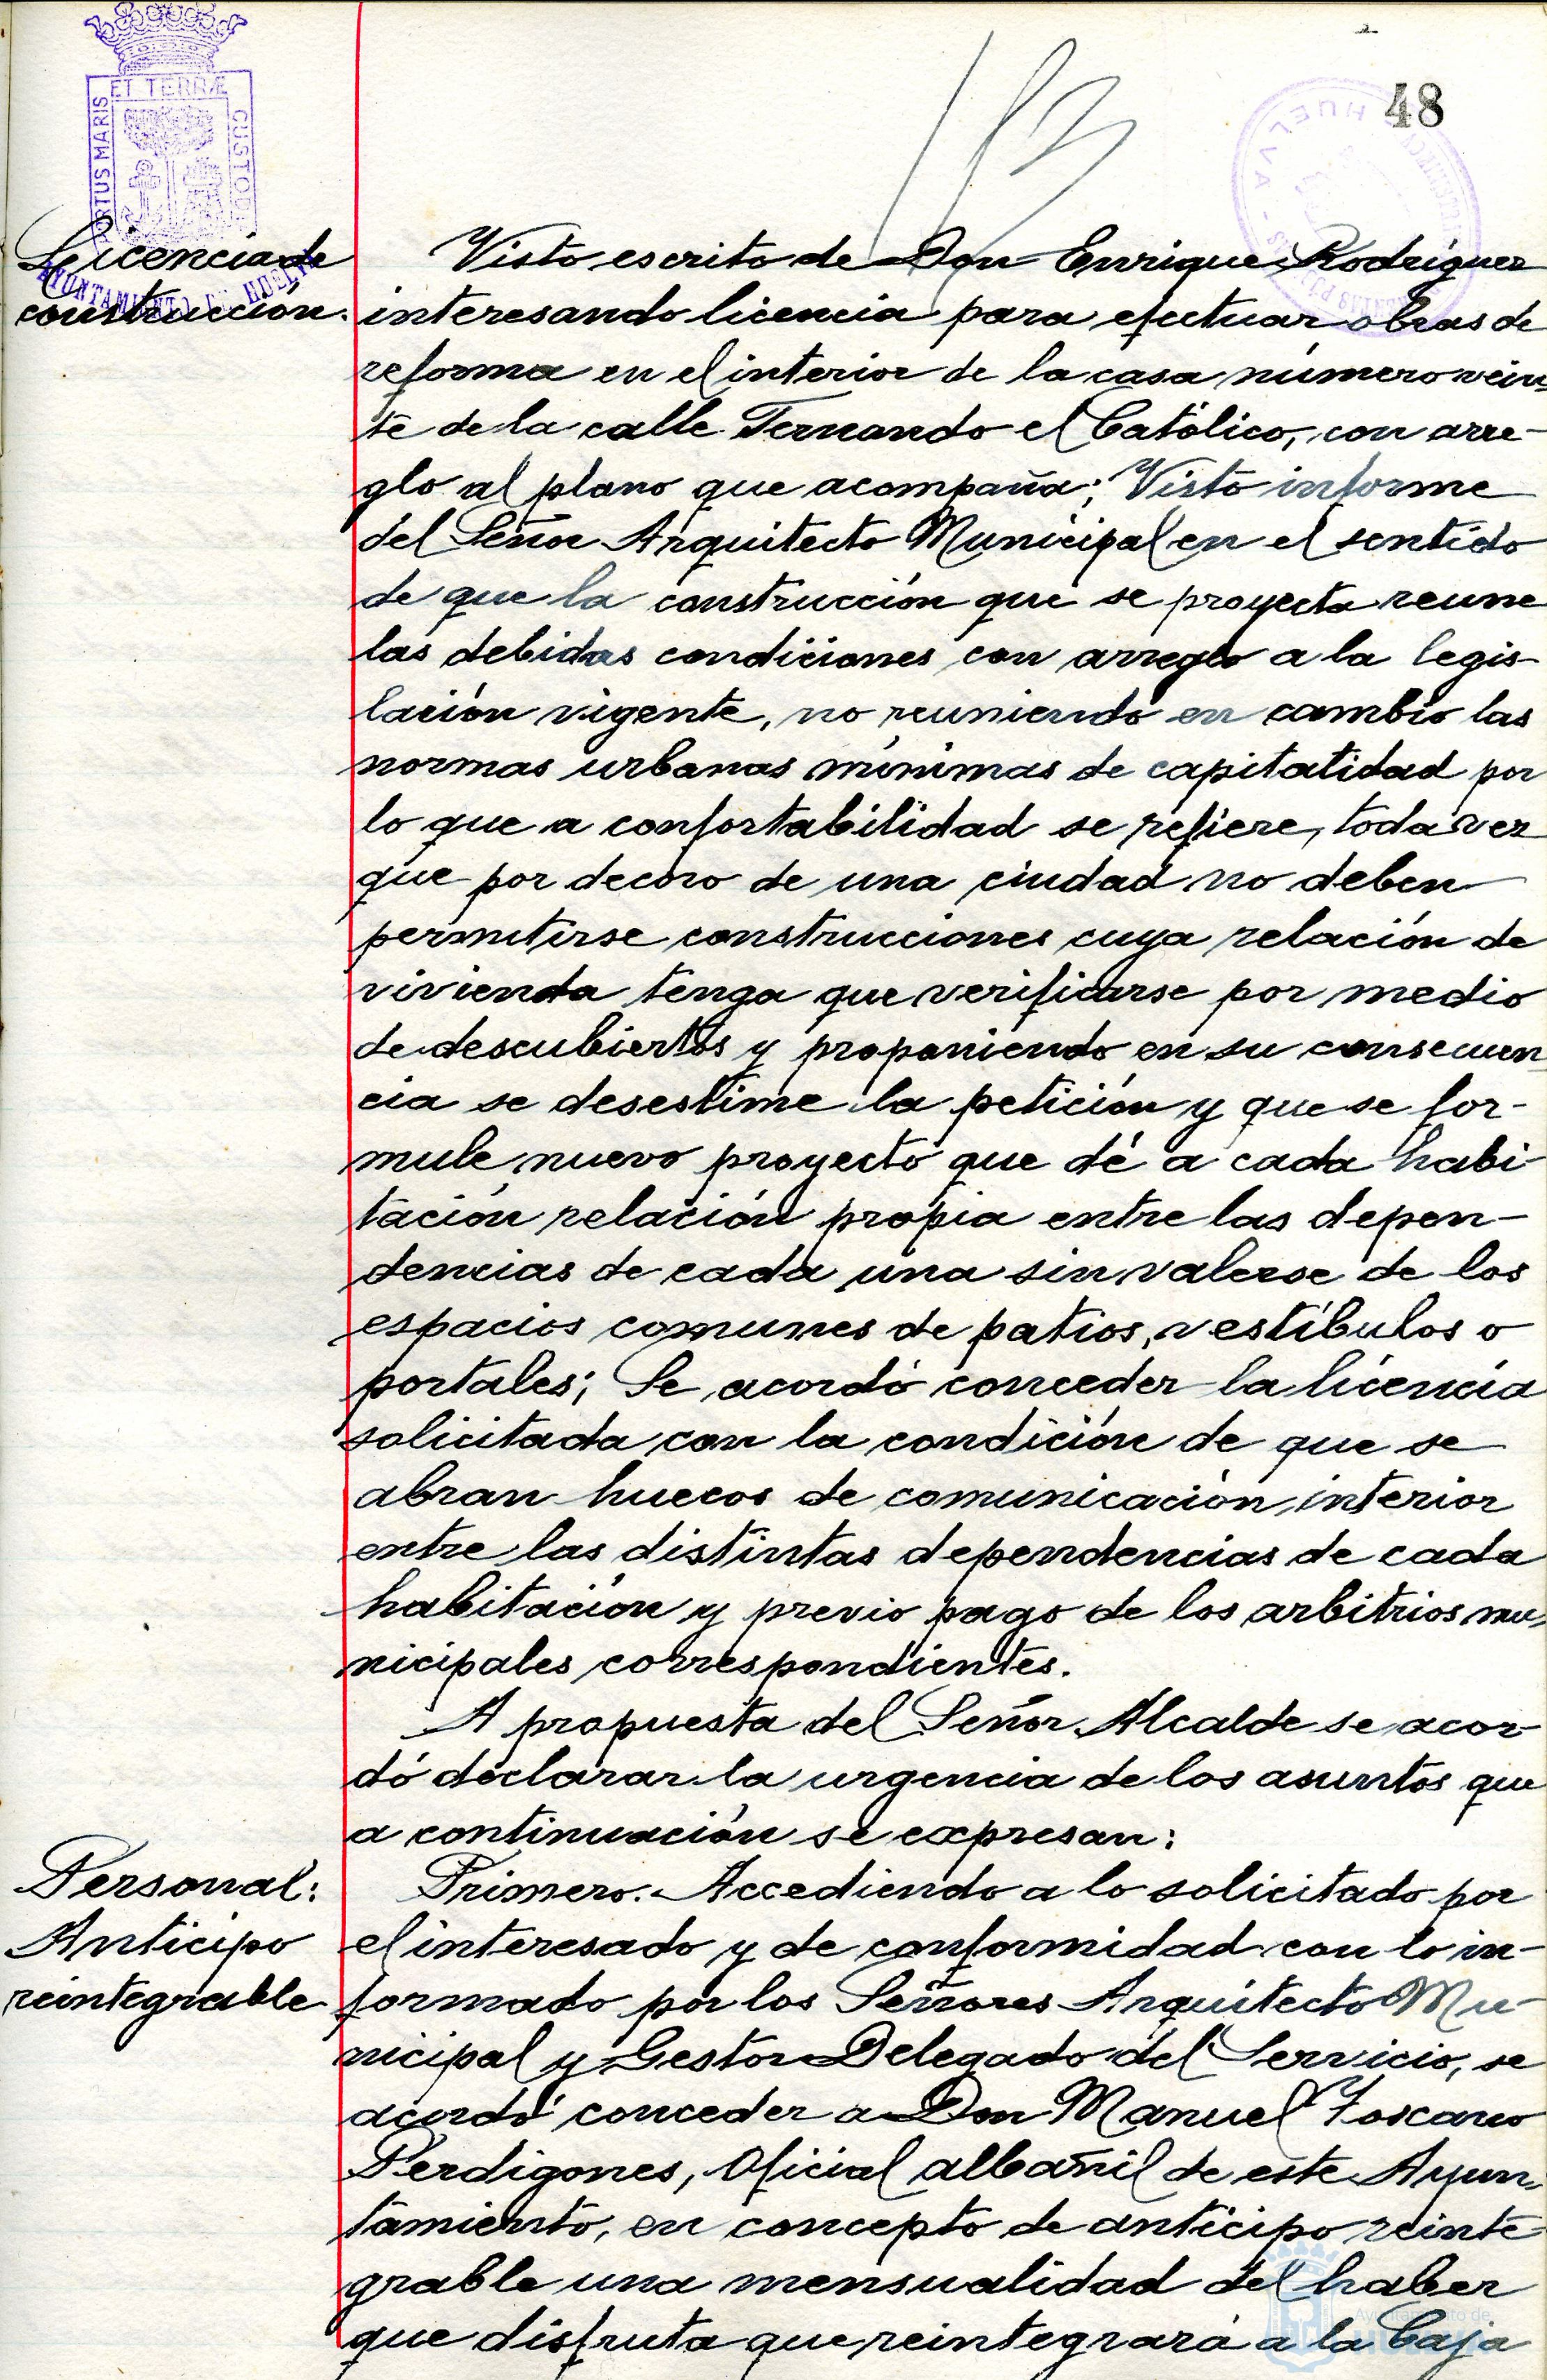 48
ET TERRÆ
PORTUS MARIS
CUSTODIA
AYUNTAMIENTO DE HUELVA
HUELVA
Licencia de
construcción.
Visto escrito de Don Enrique Rodríguez
interesando licencia para efectuar obras de
reforma en el interior de la casa número vein-
te de la calle Fernando el Católico, con arre-
glo al plano que acompaña; Visto informe
del Señor Arquitecto Municipal en el sentido
de que la construcción que se proyecta reune
las debidas condiciones con arreglo a la legis-
lación vigente, no reuniendo en cambio las
normas urbanas mínimas de capitalidad por
lo que a confortabilidad se refiere, toda vez
que por decoro de una ciudad no deben
permitirse construcciones cuya relación de
vivienda tenga que verificarse por medio
de descubiertos y proponiendo en su consecuen-
cia se desestime la petición y que se for-
mule nuevo proyecto que dé a cada habi-
tación relación propia entre las depen-
dencias de cada una sin valerse de los
espacios comunes de patios, vestíbulos o
portales; Se acordó conceder la licencia
solicitada con la condición de que se
abran huecos de comunicación interior
entre las distintas dependencias de cada
habitación y previo pago de los arbitrios mu-
nicipales correspondientes.
A propuesta del Señor Alcalde se acor-
dó declarar la urgencia de los asuntos que
a continuación se expresan:
Personal:
Anticipo
reintegrable
Primero. Accediendo a lo solicitado por
el interesado y de conformidad con lo in-
formado por los Señores Arquitecto Mu-
nicipal y Gestor Delegado del Servicio, se
acordó conceder a Don Manuel Toscano
Perdigones, Oficial albañil de este Ayun-
tamiento, en concepto de anticipo reinte-
grable una mensualidad del haber
que disfruta que reintegrará a la Caja
Ayuntamiento de
HUELVA